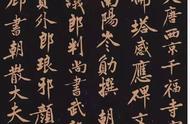 大唐西京千福寺
佛塔感應碑文
南陽岑勛撰朝
議郎判尚書武
員外郎琅邪顏
卿書朝散大夫